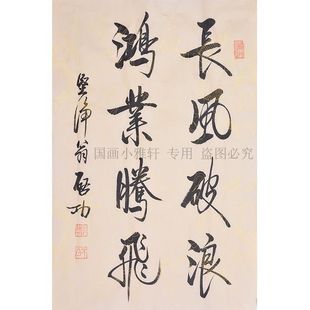 長風破浪
鴻業騰飛
堅淨翁启功
国画小雅轩 专用 盗图必究